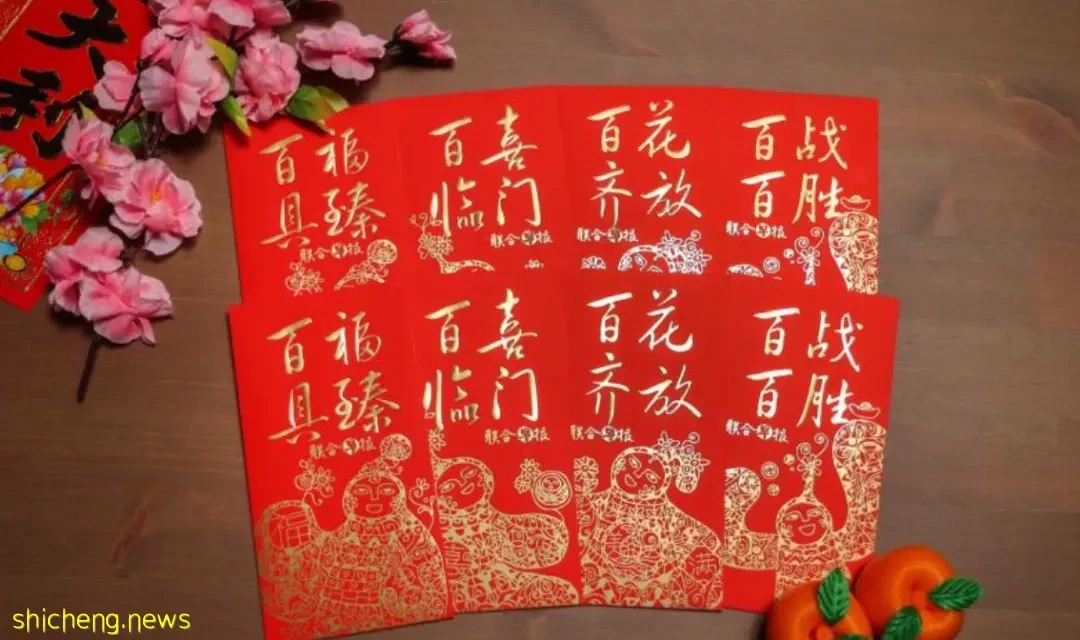 百福
具臻
联合早报
百喜
临门
联合早报
百花
齐放
联合早报
百战
百胜
联合早报
百福
具臻
联合早报
百喜
临门
联合早报
百花
齐放
联合早报
百战
百胜
联合早报
福
喜
shicheng.news